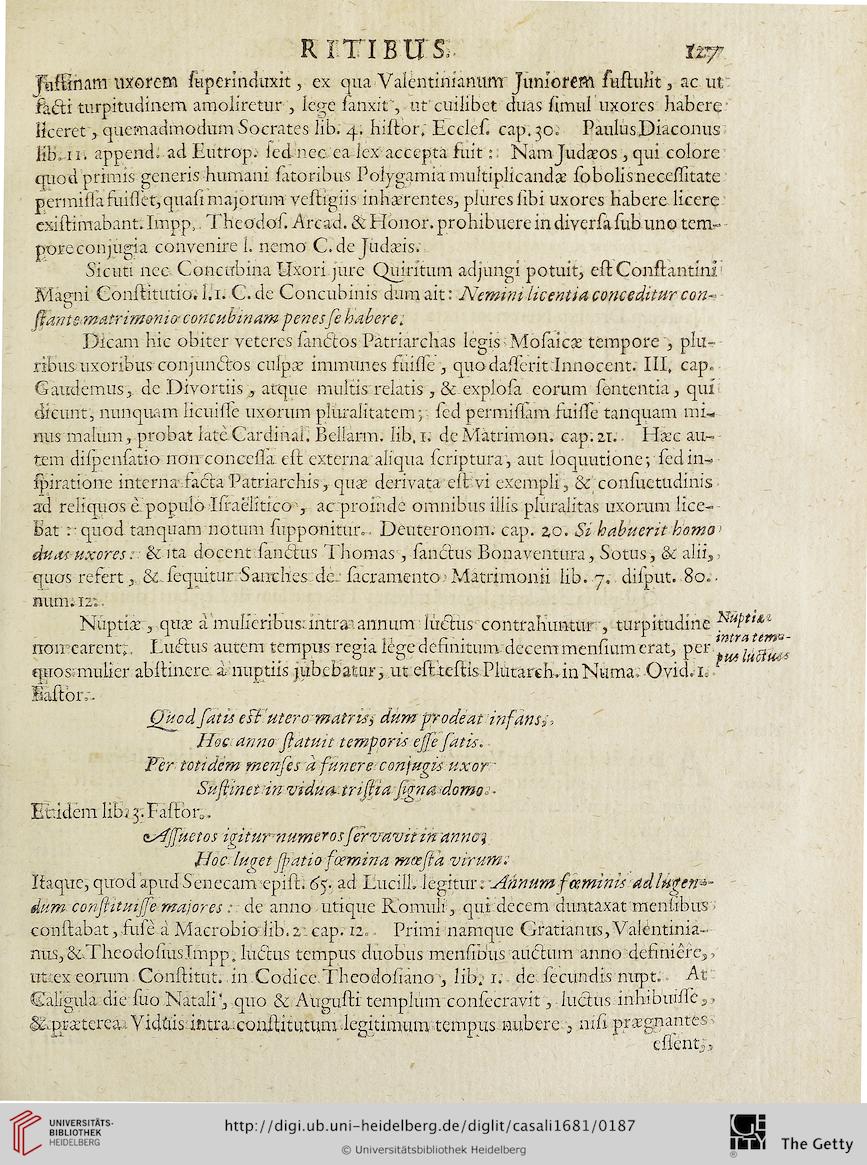 RITIBUS. 127
Justinam uxorem superinduxit, ex qua Valentinianum Juniorem sustulit, ac ut
facti turpitudinem amoliretur, lege sanxit, ut cuilibet duas simul uxores habere
liceret, quemadmodum Socrates lib. 4. histor. Eccles. cap. 30. Paulus Diaconus
lib. 11. append. ad Eutrop. sed nec ea lex accepta fuit: Nam Judæos, qui colore
quod primis generis humani satoribus Polygamia multiplicandæ sobolis necessitate
permissa fuisset, quasi majorum vestigiis inhærentes, plures sibi uxores habere licere
existimabant. Impp. Theodos. Arcad. & Honor. prohibuere in diversa sub uno tem-
pore conjugia convenire l. nemo C. de Judæis.
Sicuti nec Concubina Uxori jure Quiritum adjungi potuit, est Constantini
Magni Constitutio. l. 1. C. de Concubinis dum ait: Nemini licentia conceditur con-
stante matrimonio concubinam penes se habere.
Dicam hic obiter veteres sanctos Patriarchas legis Mosaicæ tempore, plu-
ribus uxoribus conjunctos culpæ immunes fuisse, quod asserit Innocent. III. cap.
Gaudemus, de Divortiis, atque multis relatis, & explosa eorum sententia, qui
dicunt, nunquam licuisse uxorum pluralitatem; sed permissam fuisse tanquam mi-
nus malum, probat latè Cardinal. Bellarm. lib. 1. de Matrimon. cap. 21. Hæc au-
tem dispensatio non concessa est externa aliqua scriptura, aut loquutione; sed in-
spiratione interna facta Patriarchis, quæ derivata est vi exempli, & consuetudinis
ad reliquos è populo Israëlitico, ac proinde omnibus illis pluralitas uxorum lice-
bat: quod tanquam notum supponitur. Deuteronom. cap. 20. Si habuerit homo
duas uxores: & ita docent sanctus Thomas, sanctus Bonaventura, Sotus, & alii,
quos refert, & sequitur Sanches de sacramento Matrimonii lib. 7. disput. 80.
num. 12.
Nuptiæ, quæ à mulieribus intra annum luctus contrahuntur, turpitudine
non carent. Luctus autem tempus regia lege definitum decem mensium erat, per
quos mulier abstinere à nuptiis jubebatur, ut est testis Plutarch. in Numa. Ovid. 1.
Fastor.
Nuptiæ
intra tem-
pus luctus
Quod satis est utero matris, dum prodeat infans,
Hoc anno statuit temporis esse satis.
Per totidem menses à funere conjugis uxor
Sustinet in vidua tristia signa domo.
Et idem lib. 3. Fastor.
Assuetos igitur numeros servavit in anno;
Hoc luget spatio fœmina mœsta virum.
Itaque, quod apud Senecam epist. 65. ad Lucill. legitur: Annum fœminis ad lugen-
dum constituisse majores: de anno utique Romuli, qui decem duntaxat mensibus
constabat, fusè à Macrobio lib. 2. cap. 12. Primi namque Gratianus, Valentinia-
nus, & Theodosius Impp. luctus tempus duobus mensibus auctum anno definiêre,
ut ex eorum Constitut. in Codice Theodosiano, lib. 1. de secundis nupt. At
Caligula die suo Natali, quo & Augusti templum consecravit, luctus inhibuisse,
& præterea Viduis intra constitutum legitimum tempus nubere, nisi prægnantes
essent,
UNIVERSITÄTS-
BIBLIOTHEK
HEIDELBERG
http://digi.ub.uni-heidelberg.de/diglit/casali1681/0187
© Universitätsbibliothek Heidelberg
The Getty